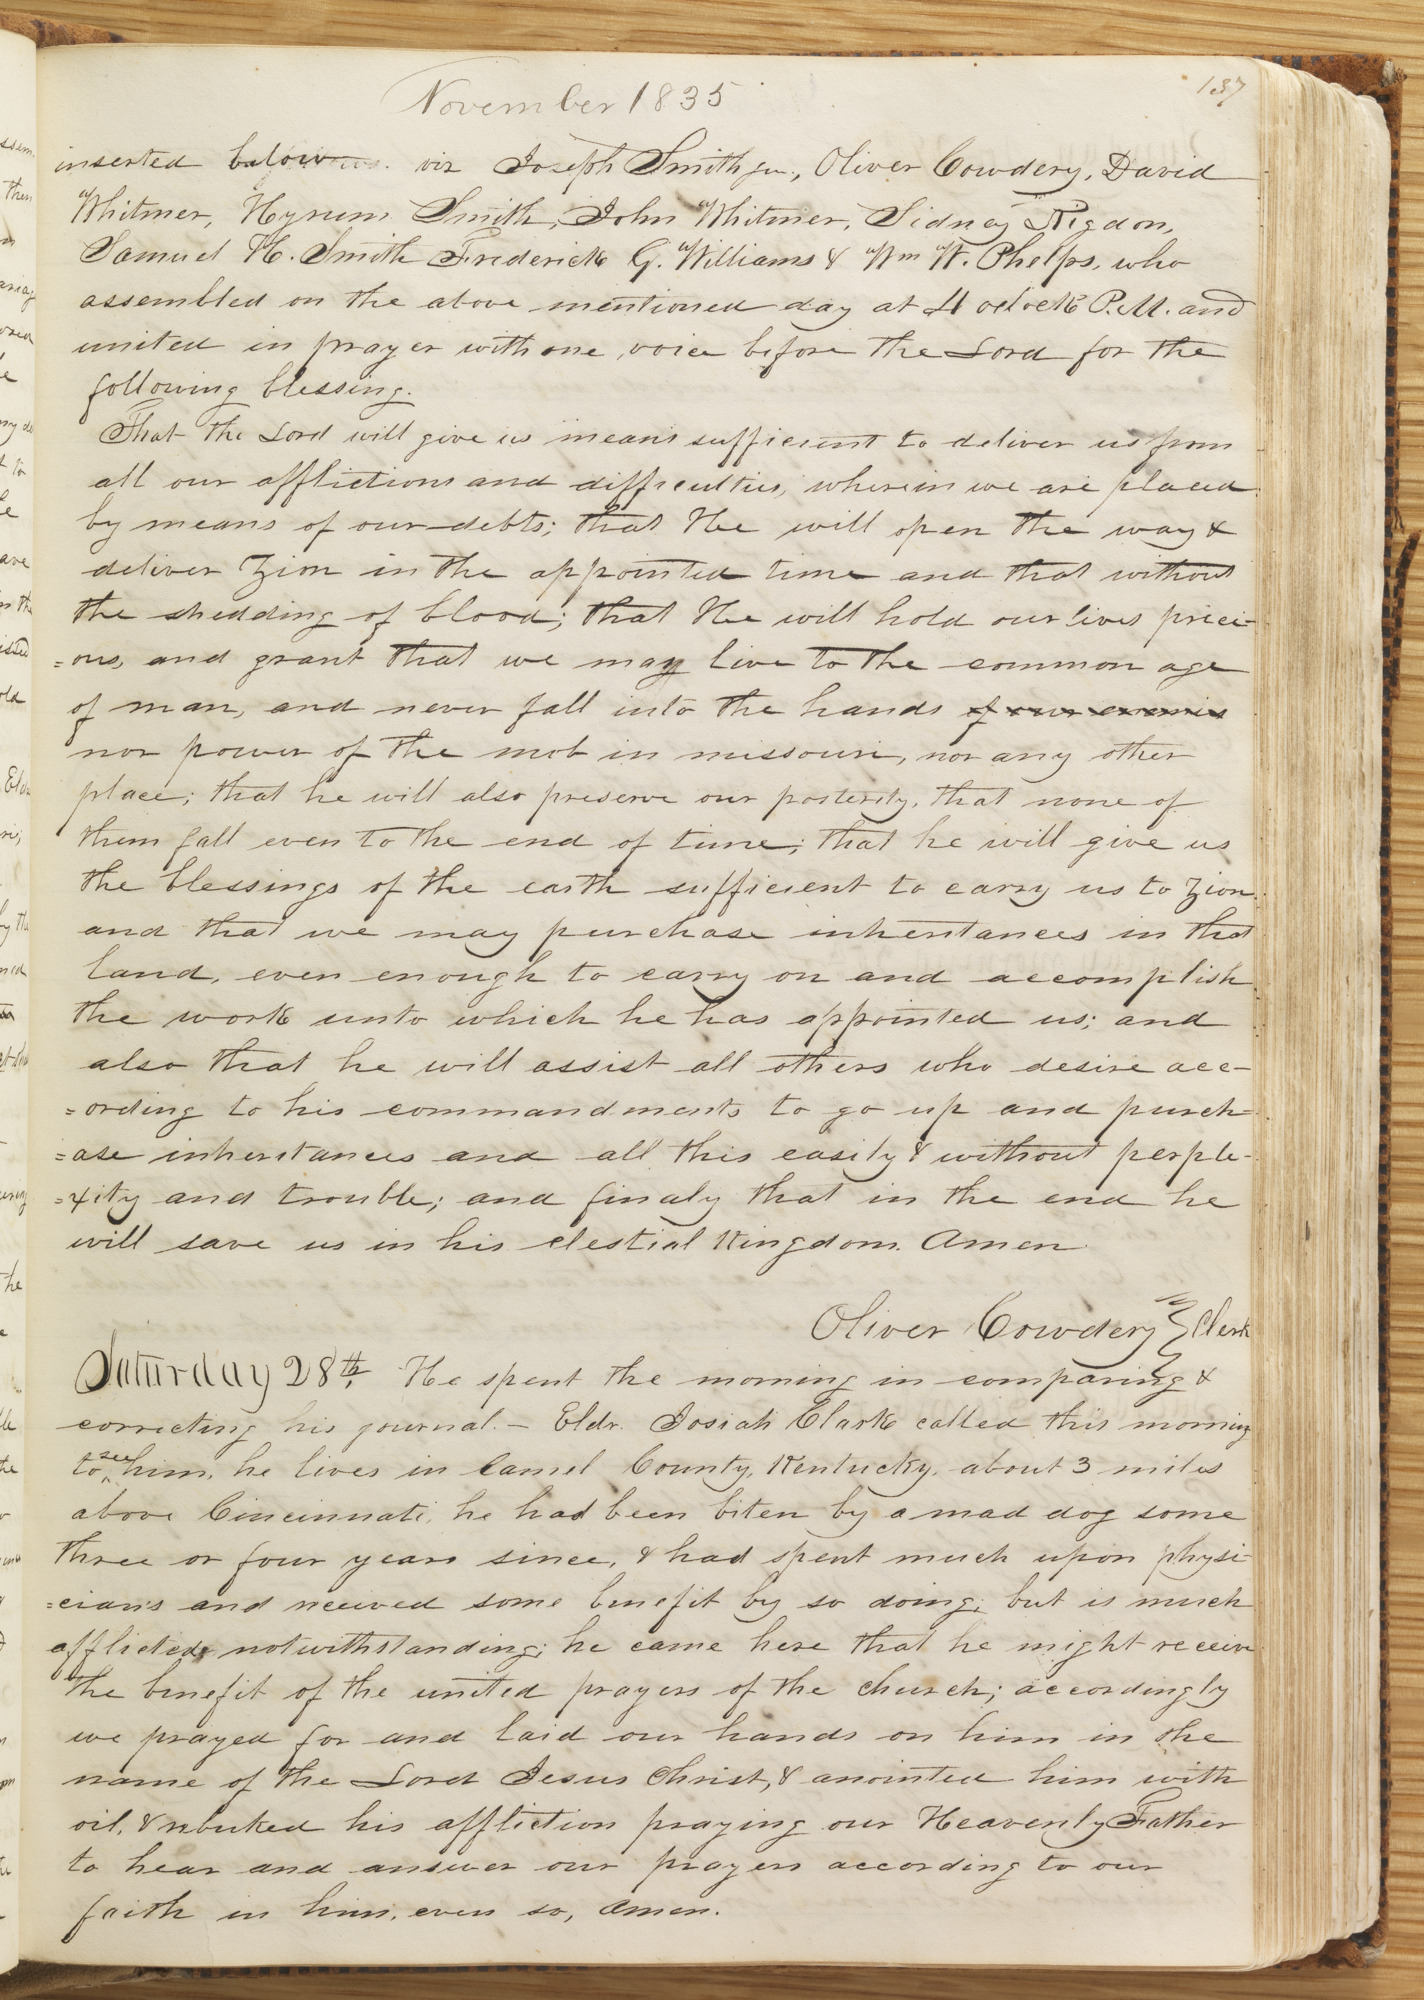 November 1835
137
inserted below viz Joseph Smith jun., Oliver Cowdery, David
Whitmer, Hyrum Smith, John Whitmer, Sidney Rigdon,
Samuel H. Smith Frederick G. Williams & Wm W. Phelps, who
assembled on the above mentioned day at 4 oclock P.M. and
united in prayer with one voice before the Lord for the
following blessing.
That the Lord will give us means sufficient to deliver us from
all our afflictions and difficulties, wherein we are placed
by means of our debts; that He will open the way &
deliver Zion in the appointed time and that without
the shedding of blood; that He will hold our lives preci-
=ous, and grant that we may live to the common age
of man, and never fall into the hands of our enemies
nor power of the mob in missouri, nor any other
place; that he will also preserve our posterity, that none of
them fall even to the end of time; that he will give us
the blessings of the earth sufficient to carry us to Zion
and that we may purchase inheritances in that
land, even enough to carry on and accomplish
the work unto which he has appointed us; and
also that he will assist all others who desire acc-
=ording to his commandments to go up and purch-
=ase inheritances and all this easily & without perple-
=xity and trouble; and finaly that in the end he
will save us in his clestial Kingdom. Amen
Oliver Cowdery } Clerk
Saturday 28th, He spent the morning in comparing &
correcting his journal. - Eldr. Josiah Clark called this morning
to see him, he lives in Camel County, Kentucky, about 3 miles
above Cincinnati, he had been biten by a mad dog some
three or four years since, & had spent much upon physi-
=cians and received some benefit by so doing; but is much
afflicted notwithstanding; he came here that he might receive
the benefit of the united prayers of the church; accordingly
we prayed for and laid our hands on him in the
name of the Lord Jesus Christ, & anointed him with
oil, & rebuked his affliction praying our Heavenly Father
to hear and answer our prayers according to our
faith in him, even so, Amen.